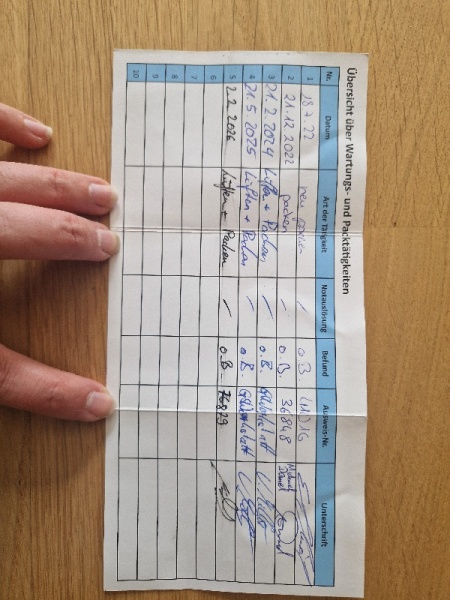 Übersicht über Wartungs- und Packtätigkeiten
Nr. Datum Art der Tätigkeit Notauslösung Befund Ausweis-Nr. Unterschrift
1 18.7.22 neu / o.B. (11) 16
2 21.12.2022 packen / o.B. 36848
3 21.2.2024 Lüften + Packen / o.B.
4 21.5.2025 Lüften + Packen / o.B.
5 2.2.2026 Lüften + Packen / o.B. 76829
6
7
8
9
10